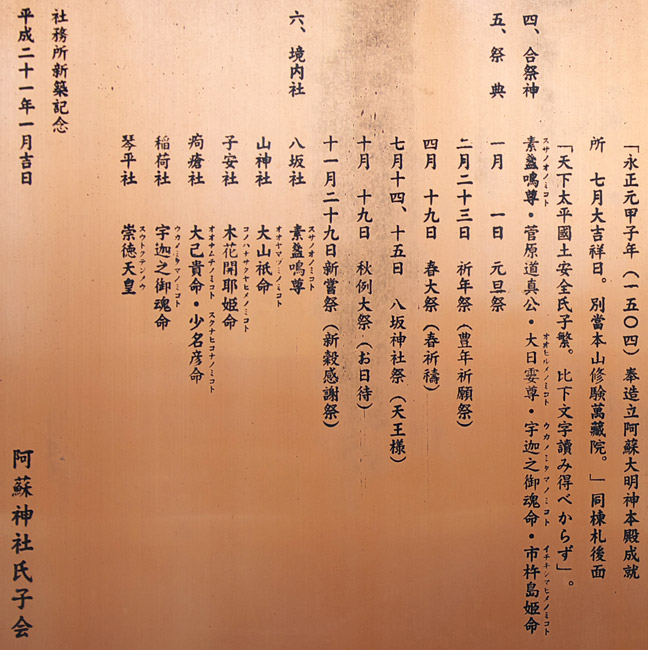 「永正元甲子年（一五〇四）奉造立阿蘇大明神本殿成就
所　七月大吉祥日。別當本山修験萬藏院。」同棟札後面
「天下太平國土安全氏子繁。比下文字讀み得べからず」。
四、合祭神　素盞鳴尊・菅原道真公・大日孁尊・宇迦之御魂命・市杵島姫命
スサノオノミコト　オオヒルメノミコト　ウカノミタマノミコト　イチキシマヒメノミコト
五、祭　典　一月　一日　元旦祭
二月二十三日　祈年祭（豊年祈願祭）
四月　十九日　春大祭（春祈禱）
七月十四、十五日　八坂神社祭（天王様）
十月　十九日　秋例大祭（お日待）
十一月二十九日新嘗祭（新穀感謝祭）
六、境内社　八坂社　素盞鳴尊
スサノオノミコト
山神社　大山祇命
オオヤマヅミノミコト
子安社　木花開耶姫命
コノハナサクヤヒメノミコト
疱瘡社　大己貴命・少名彦命
オオナムチノミコト　スクナヒコナノミコト
稲荷社　宇迦之御魂命
ウカノミタマノミコト
琴平社　崇徳天皇
スウトクテンノウ
社務所新築記念
平成二十一年一月吉日
阿蘇神社氏子会